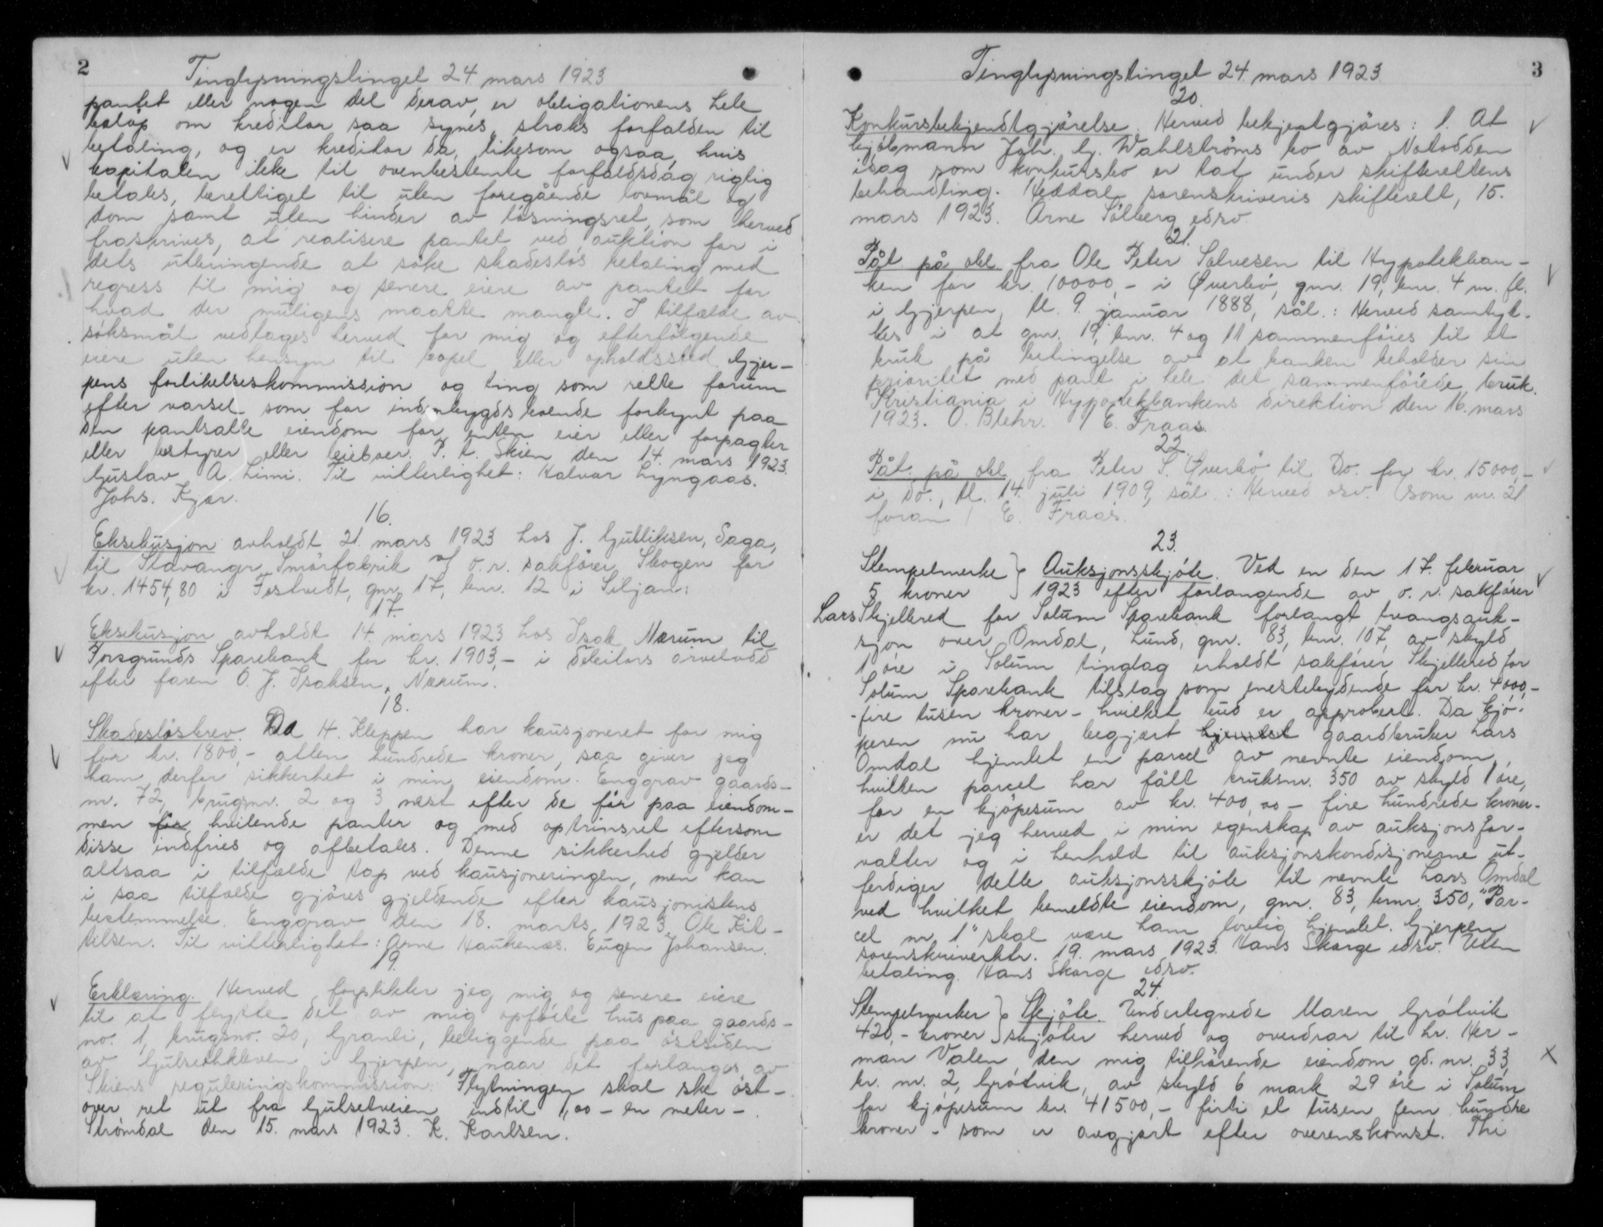 2
Tinglysningstinget 24 mars 1923
pantet eller nogen del derav, er obligationens hele
beløp om kreditor saa synes, straks forfalden til
betaling, og er kreditor da, likesom ogsaa, hvis
kapitalen ikke til ovenbestemte forfaldsdag rigtig
betales, berettiget til uten foregående lovmål og
dom samt uten hinder av løsningsret, som herved
fraskrives, at realisere pantet ved auktion for i
dets utbringende at søke skadesløs betaling med
regress til mig og senere eiere av pantet for
hvad der muligens maatte mangle. I tilfælde av
søksmål vedtages herved for mig og efterfølgende
eiere uten hensyn til bopel eller opholdssted Gjer-
pens forlikelseskommission og ting som rette forum
efter varsel som for indenbygds boende forkynt paa
den pantsatte eiendom for enten eier eller forpagter
eller bestyrer eller leieboer. P. t. Skien den 14 mars 1923.
Gustav A Limi. Til vitterlighet: Halvar Lyngaas.
Johs. Kjær.
16.
Eksekusjon avholdt 21 mars 1923 hos J. Gulliksen, Saga,
til Stavanger Smørfabrik v/ o.r. sakfører Skogen for
kr. 1454,80 i Festvedt, gnr. 17, bnr. 12 i Siljan:
17.
Eksekusjon avholdt 14 mars 1923 hos Isak Nærum til
Porsgrunds Sparebank for kr. 1903,- i debitors arvelodd
efter faren O. J. Isaksen, Nærum.
18.
Skadesløsbrev. Da H. Kleppen har kausjoneret for mig
for kr. 1800,- atten hundrede kroner, saa giver jeg
ham derfor sikkerhet i min eiendom. Enggrav gaards-
nr. 72, brugsnr. 2 og 3 næst efter de før paa eiendom-
men før hvilende panter og med optrinsret eftersom
disse indfries og afbetales. Denne sikkerhed gjelder
altsaa i tilfælde tap ved kausjoneringen, men kan
i saa tilfælde gjøres gjeldende efter kausjonistens
bestemmelse. Enggrav den 18. marts 1923. Ole Kit-
tilsen. Til vitterlighet: Arne Haukenæs. Eugen Johansen.
19.
Erklæring. Herved forplikter jeg mig og senere eiere
til at flytte det av mig opførte hus paa gaards-
no. 1, brugsno. 20, Granli, beliggende paa østsiden
av Gulsetkleven i Gjerpen, naar det forlanges av
Skiens reguleringskommission. Flytningen skal ske øst-
over ret ut fra Gulsetveien indtil 1,00 - en meter -.
Strømdal den 15. mars 1923. K. Karlsen.
3
Tinglysningstinget 24 mars 1923
20.
Konkursbekjendtgjørelse. Herved bekjentgjøres: 1. At
kjøbmann Joh. G. Wahlströms bo av Notodden
idag som konkursbo er tat under skifterettens
behandling. Heddal sorenskriveris skifterett, 15.
mars 1923. Arne Sølberg edsv.
21.
Påt på obl. fra Ole Peter Salvesen til Hypotekban-
ken for kr. 10000,- i Øverbö, gnr. 19, bnr. 4 m. fl.
i Gjerpen, tl. 9. januar 1888, sål.: Herved samtyk-
kes i at gnr. 19, bnr. 4 og 11 sammenføies til et
bruk på betingelse av at banken beholder sin
prioritet med pant i hele det sammenføiede bruk.
Kristiania i Hypotekbankens direktion den 16. mars
1923. O. Blehr. / E. Fraas.
22.
Påt. på obl. fra Peter S. Øverbö til Do. for kr. 15000,-
i do., tl. 14. juli 1909, sål.: Herved osv. (som nr. 21
foran) E. Fraas.
23.
Stempelmerke } Auksjonsskjöte. Ved en den 17. februar
5 kroner } 1923 efter forlangende av o. r. sakfører
Lars Skjellered for Solum Sparebank forlangt tvangsauk-
sjon over Omdal, Lund, gnr. 83, bnr. 107, av skyld
1 øre i Solum tinglag erholdt sakfører Skjellered for
Solum Sparebank tilslag som enestebydende for kr. 4000,-
- fire tusen kroner - hvilket bud er approbert. Da kjø-
peren nu har begjært hjemlet gaardbruker Lars
Omdal hjemlet en parcel av nevnte eiendom,
hvilken parcel har fått bruksnr. 350 av skyld 1 øre,
for en kjøpesum av kr. 400,00 - fire hundrede kroner -
er det jeg herved i min egenskap av auksjonsfor-
valter og i henhold til auksjonskondisjonerne ut-
ferdiger dette auksjonsskjöte til nevnte Lars Omdal
ved hvilket bemeldte eiendom, gnr. 83, bnr. 350, "Par-
cel nr. 1" skal være ham lovlig hjemlet. Gjerpen
sorenskriverktr. 19. mars 1923. Hans Skarge edsv. Uten
betaling. Hans Skarge edsv.
24.
Stempelmerker } Skjöte. Undertegnede Maren Grótvik
420,- kroner } skjøter herved og overdrar til hr. Her-
man Valen den mig tilhørende eiendom gd. nr. 33,
br. nr. 2, Grótvik, av skyld 6 mark 29 øre i Solum
for kjøpesum kr. 41500,- firti et tusen fem hundre
kroner - som er avgjort efter overenskomst. Thi